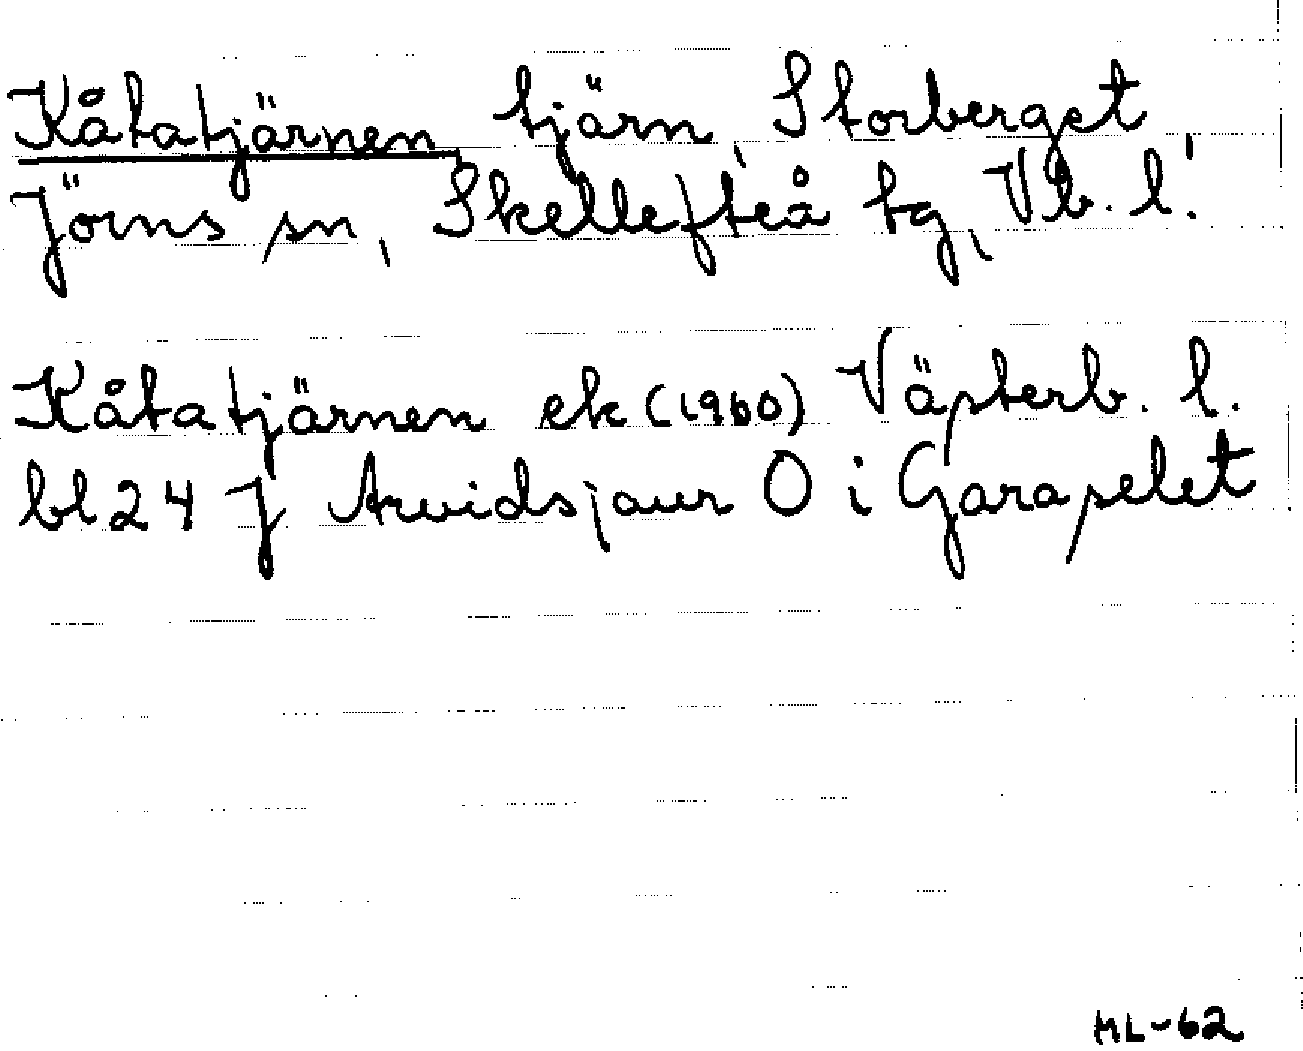 Kåtatjärnen, tjärn, Storberget,
Jörns sn, Skellefteå tg, Vb. l.
Kåtatjärnen ek (1960) Västerb. l.
bl 24 J Arvidsjaur O i Garaselet
ML-62